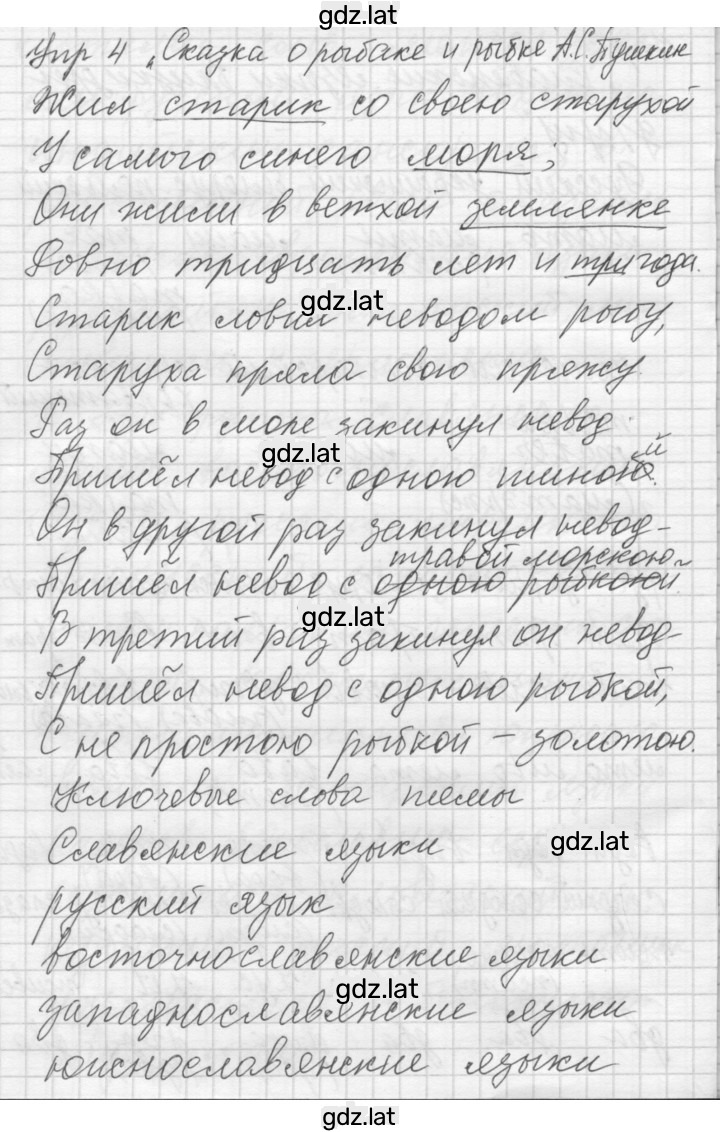 gdz.lat
Упр 4 „Сказка о рыбаке и рыбке" А.С. Пушкин
Жил старик со своею старухой
У самого синего моря;
Они жили в ветхой землянке
Ровно тридцать лет и три года.
gdz.lat
Старик ловил неводом рыбу,
Старуха пряла свою пряжу.
Раз он в море закинул невод.
gdz.lat
й
Пришёл невод с одною тиною.
Он в другой раз закинул невод-
травой морскою
Пришёл невод с одною рыбкой.
gdz.lat
В третий раз закинул он невод
Пришёл невод с одною рыбкой,
С не простою рыбкой – золотою.
Ключевые слова темы
Славянские языки
gdz.lat
русский язык
восточнославянские языки
gdz.lat
западнославянские языки
южнославянские языки
gdz.lat